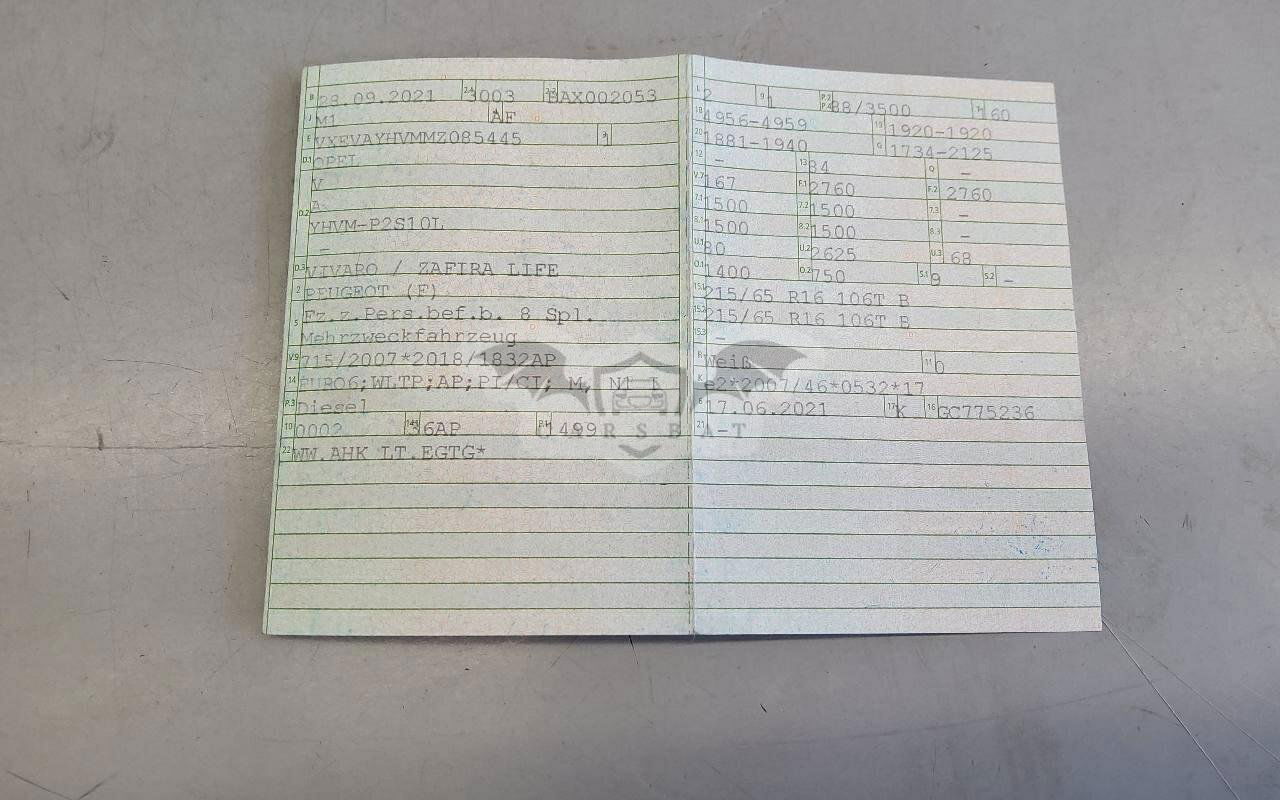 B 28.09.2021 2.1 3003 2.2 BAX002053
J M1 4 AF
E VXEVAYHVMMZ085445 3 1
D.1 OPEL
D.2 V
A
YHVM-P2S10L
-
D.3 VIVARO / ZAFIRA LIFE
2 PEUGEOT (F)
5 Fz.z.Pers.bef.b. 8 Spl.
Mehrzweckfahrzeug
V.9 715/2007*2018/1832AP
14 EURO6;WLTP;AP;PI/CI; M, N1 I
P.3 Diesel
10 0002 14.1 36AP P.1 1499
22 WW.AHK LT.EGTG*
L 2 9 1 P.2 P.4 88/3500 T 160
18 4956-4959 19 1920-1920
20 1881-1940 G 1734-2125
12 - 13 84 Q -
V.7 167 F.1 2760 F.2 2760
7.1 1500 7.2 1500 7.3 -
8.1 1500 8.2 1500 8.3 -
U.1 80 U.2 2625 U.3 68
O.1 1400 O.2 750 S.1 9 S.2 -
15.1 215/65 R16 106T B
15.2 215/65 R16 106T B
15.3 -
R Weiß 11 0
K e2*2007/46*0532*17
6 17.06.2021 17 K 16 GC775236
21 -
CARSBAT